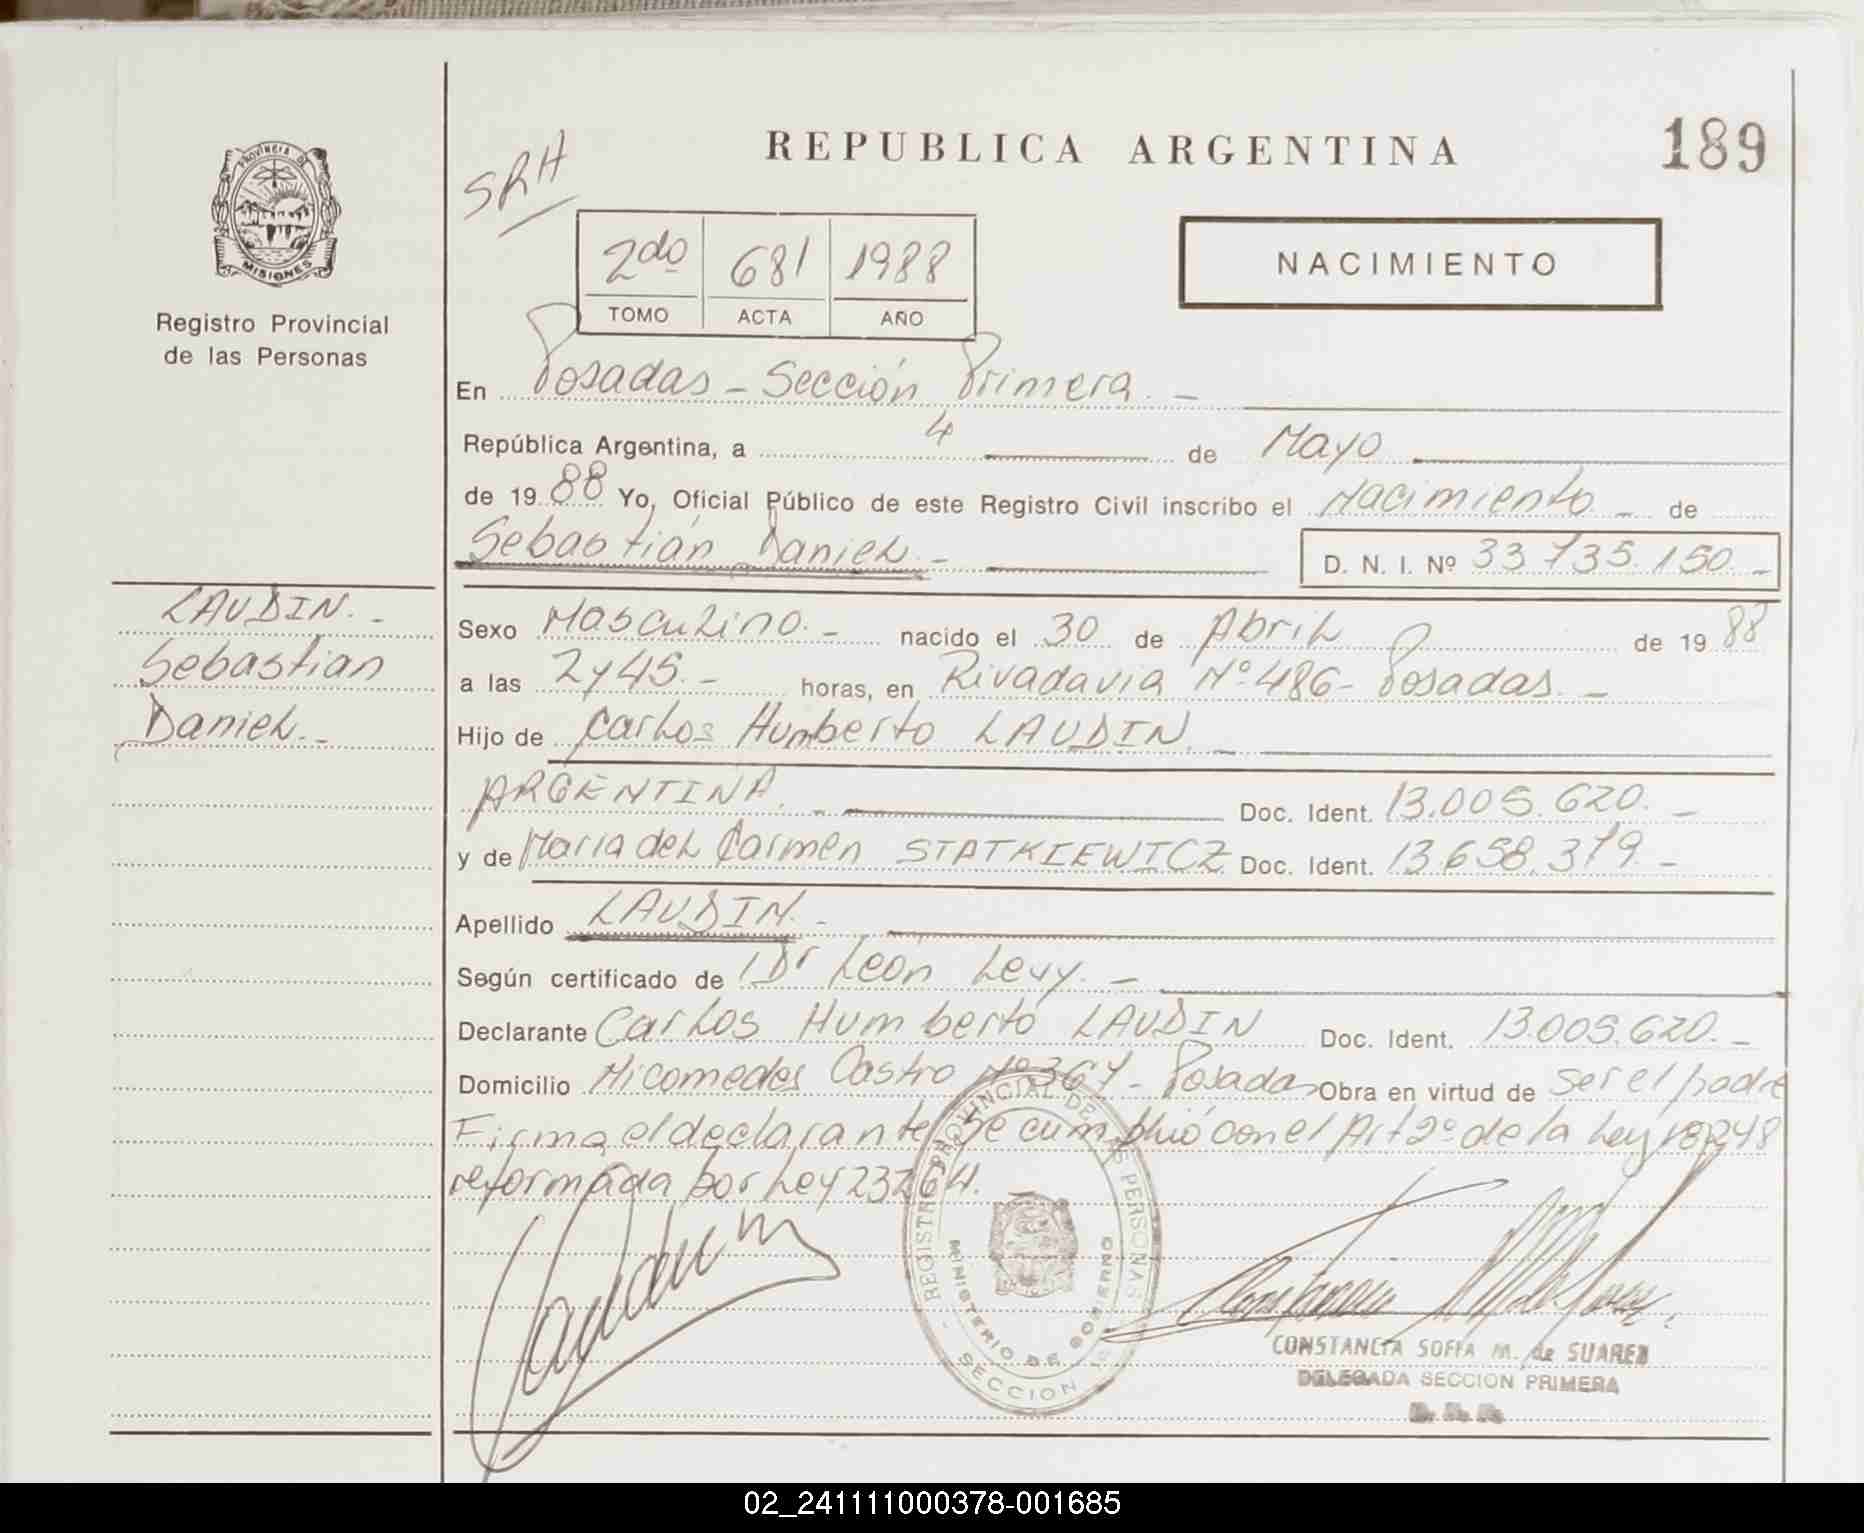 REPUBLICA ARGENTINA
189
SRH
PROVINCIA D
MISIONES
Registro Provincial
de las Personas
2do 681 1988
TOMO ACTA AÑO
NACIMIENTO
En Posadas - Sección Primera. -
República Argentina, a 4 de Mayo
de 1988 Yo, Oficial Público de este Registro Civil inscribo el Nacimiento - de
Sebastián Daniel. - D. N. I. Nº 33 735. 150. -
LAUDIN. -
Sebastian
Daniel. -
Sexo Masculino. - nacido el 30 de Abril de 1988
a las 2 y 45. - horas, en Rivadavia Nº 486 - Posadas. -
Hijo de Carlos Humberto LAUDIN. -
ARGENTINA. - Doc. Ident. 13.005.620. -
y de Maria del Carmen STATKIEWICZ Doc. Ident. 13.658.379. -
Apellido LAUDIN. -
Según certificado de Dr León Levy. -
Declarante Carlos Humberto LAUDIN Doc. Ident. 13.005.620. -
Domicilio Nicomedes Castro Nº 367 - Posadas Obra en virtud de ser el padre
Firma el declarante, Se cumplió con el Art 2º de la Ley 18248
reformada por Ley 23264. -
REGISTRO PROVINCIAL DE LAS PERSONAS
MINISTERIO DE GOBIERNO
SECCION 1º
CONSTANCIA SOFIA M. de SUAREZ
DELEGADA SECCION PRIMERA
02_241111000378-001685